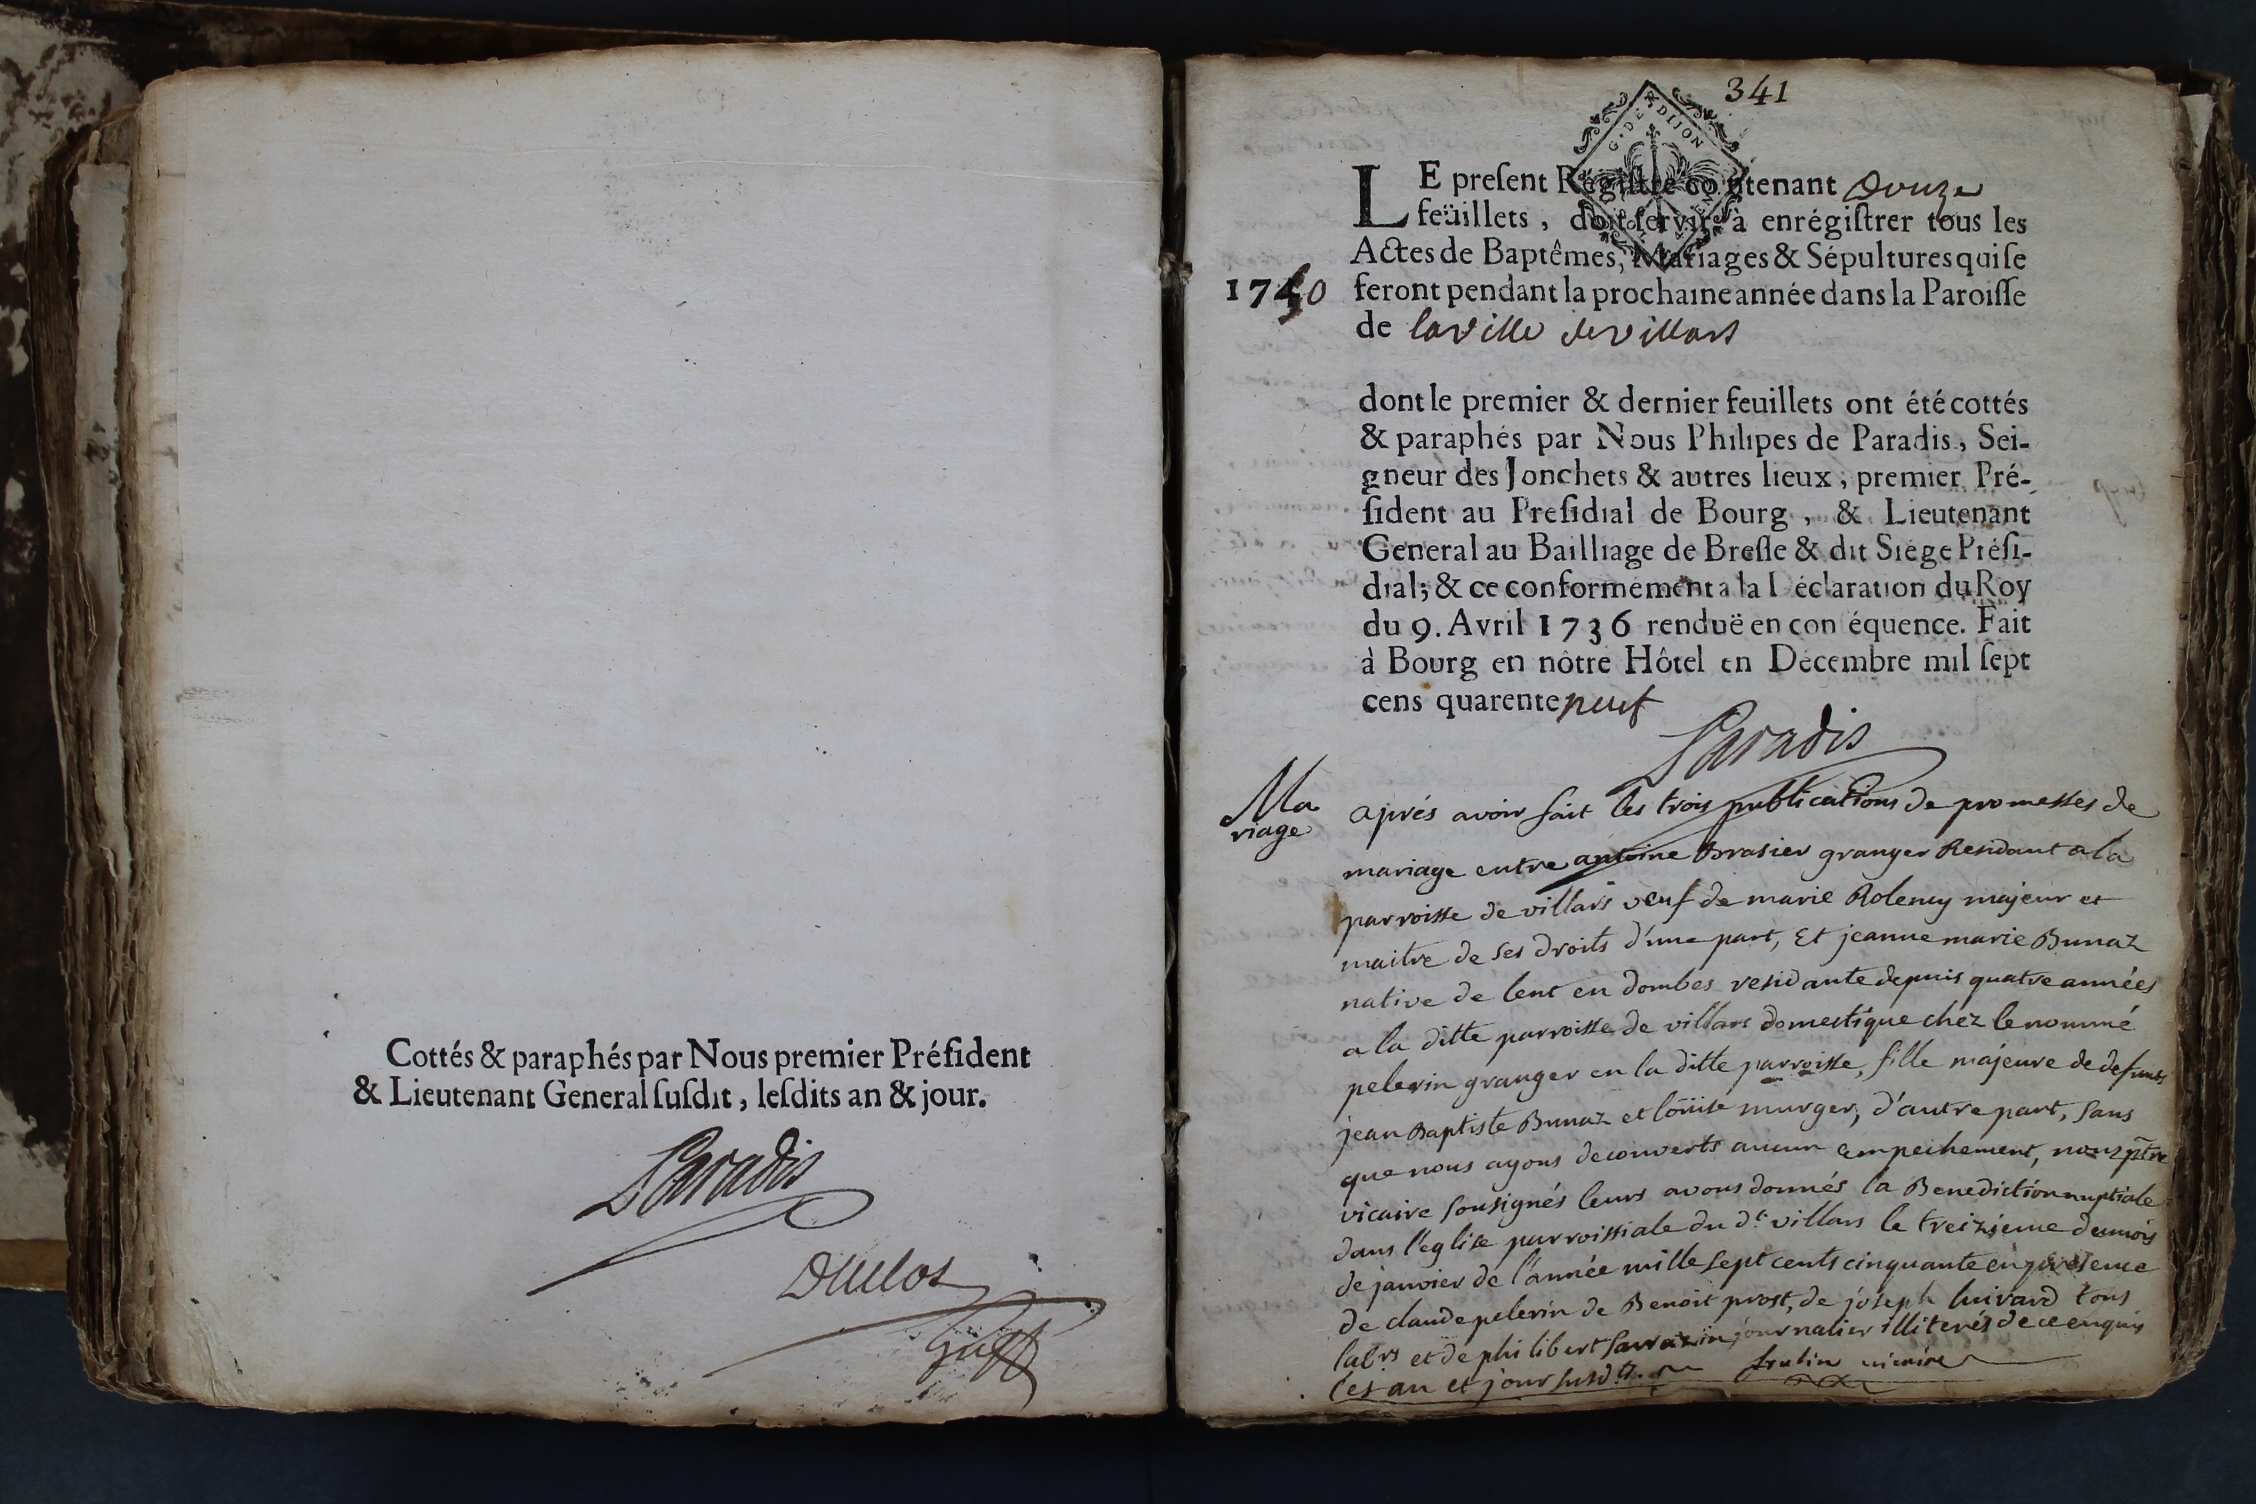 Cottés & paraphés par Nous premier Préſident
& Lieutenant General ſuſdit, leſdits an & jour.
Paradis
Duclos
341
G. DE DIJON
LE preſent Regiſtre contenant douze
feüillets, doit ſervir à enrégiſtrer tous les
Actes de Baptêmes, Mariages & Sépultures qui ſe
1750 feront pendant la prochaine année dans la Paroiſſe
de la ville de villars
dont le premier & dernier feuillets ont été cottés
& paraphés par Nous Philipes de Paradis, Sei-
gneur des Jonchets & autres lieux, premier Pré-
ſident au Preſidial de Bourg, & Lieutenant
General au Bailliage de Breſſe & dit Siége Préſi-
dial; & ce conformément a la Déclaration du Roy
du 9. Avril 1736 renduë en conſéquence. Fait
à Bourg en nôtre Hôtel en Décembre mil ſept
cens quarente neuf
Paradis
Ma
riage
aprés avoir fait les trois publications de promesses de
mariage entre antoine Brasier granger Residant a la
parroisse de villars veuf de marie Roleny majeur et
maitre de ses droits d'une part, Et jeanne marie Bunaz
native de lent en dombes residante depuis quatre années
a la ditte parroisse de villars domestique chez le nommé
pelerin granger en la ditte parroisse, fille majeure de defunts
jean Baptiste Bunaz et loüise murger, d'autre part, sans
que nous ayons decouverts aucun empechement, nous ptre
vicaire sousignés leurs avons donnés la Benediction nuptiale
dans l'eglise parroissiale du dt villars le treizieme du mois
de janvier de l'année mille sept cents cinquante en presence
de claude pelerin de Benoit prost, de joseph luivard tous
labrs et de philibert Sarrazin journalier illiterés de ce enquis
les an et jour susdts. vicaire